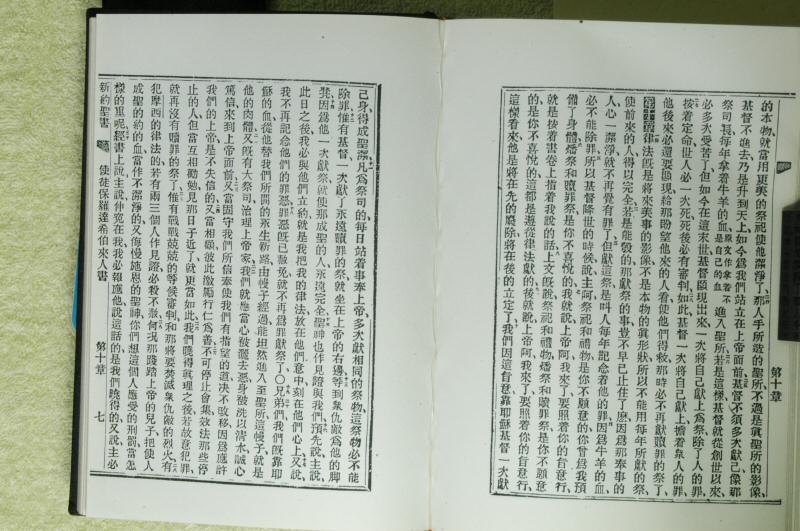 第十章
的本物就當用更美的祭祀使他潔淨了那人手所造的聖所不過是眞聖所的影像、
基督不進去乃是升到天上如今爲我們站立在上帝面前基督不須多次獻己像那
祭司長每年拿着牛羊的血原文作拿着不是自己的血進入聖所若是這樣基督就從創世以來、
必多次受苦了但如今在這末世基督顯現出來一次將自己獻上爲祭除了人的罪、
按着定命世人必一次死死後必有審判如此基督一次將自己獻上擔着衆人的罪、
他後來必還要顯現給那盼望他來的人看使他們得救那時必不再獻贖罪的祭、
第十章律法旣是將來美事的影像不是本物的眞形狀所以不能用每年所獻的祭、
使前來的人得以完全若是能發的那獻祭的事豈不早已止住了麽因爲那奉事的
人一潔淨就不再覺有罪了但獻這祭是叫人每年記念着他的罪因爲牛羊的血
必不能除罪所以基督降世的時候說主阿祭祀和禮物是你不願意的你曾爲我預
備了身體燔祭和贖罪祭是你不喜悅的我就說上帝阿我來了要照着你的旨意行、
就是按着書卷上指着我說的話上文旣說祭祀和禮物燔祭和贖罪祭是你不願意
的是你不喜悅的這都是遵從律法獻的後又說上帝阿我來了要照着你的旨意行、
這樣看來他是將在先的廢除將在後的立定了我們因這旨意靠耶穌基督一次獻
己身得成聖潔凡爲祭司的每日站着事奉上帝多次獻相同的祭物這祭物必不能
除罪惟有基督一次獻了永遠贖罪的祭就坐在上帝的右邊等到衆仇敵爲他的脚
凳因爲他一次獻祭就使那成聖的人永遠完全聖神也作見證與我們預先說主說
此日之後我必與他們立約就是我把我的律法放在他們意中刻在他們心上又說
我不再記念他們的罪惡罪惡旣已赦免就不再爲罪獻祭了〇兄弟們我們旣靠耶
穌的血從他替我們所開的永生新路由幔子經過能坦然進入至聖所這幔子就是
他的肉體又旣有大祭司治理上帝家我們就應當心被灑去惡身被洗以淸水誠心
篤信來到上帝面前又當固守我們所信奉使我們有指望的道決不改移因爲應許
我們的上帝是不失信的又當相顧彼此激勵行仁爲善不可停止會集效法那些停
止的人但當互相勸勉見那日子近了就更當如此我們曉得眞理之後若故意犯罪
就再沒有贖罪的祭了惟有戰戰兢兢的等候審判和那將要焚滅衆仇敵的烈火有
犯摩西的律法的若有兩三個人作見證必殺不赦何况那踐踏上帝的兒子把使人
成聖的約的血當作不潔淨的又侮慢施恩的聖神你們想這個人應受的刑罰當怎
樣的重呢經書上說主說伸冤在我我必報應他說這話的是我們曉得的又說主必
新約聖書 使徒保羅達希伯來人書 第十章 七